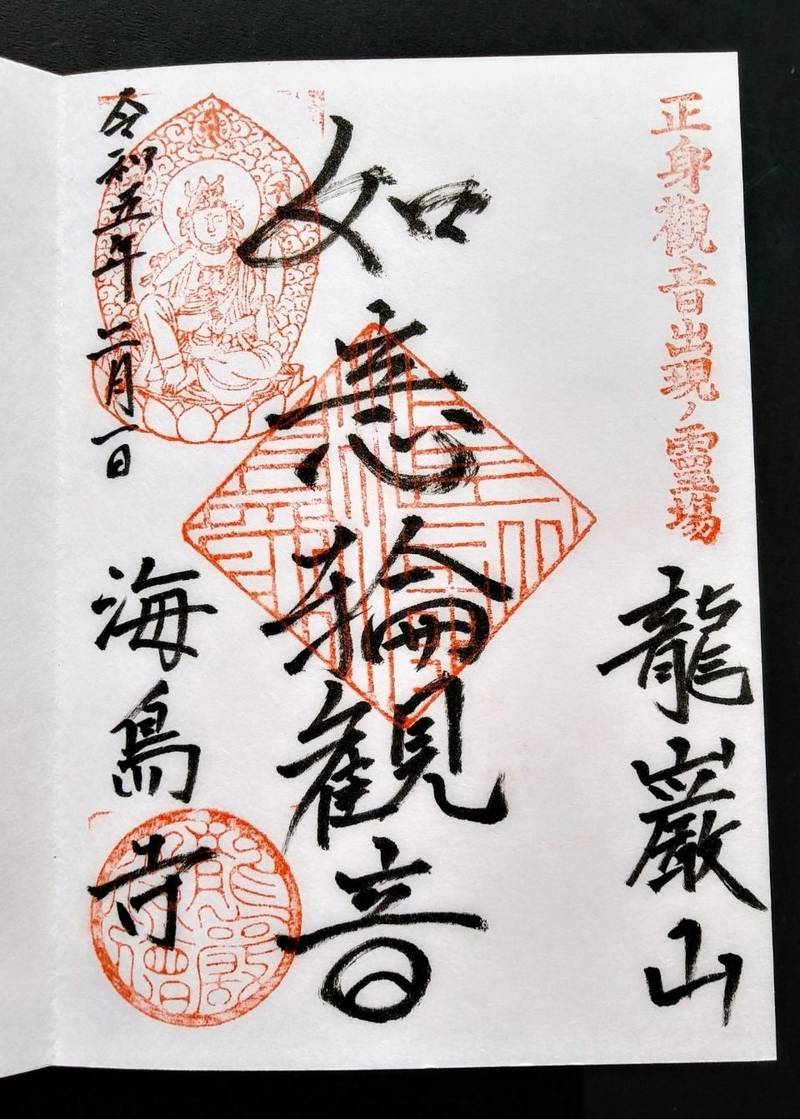 正身觀音出現ノ霊場
龍巖山
如意輪観音
令和五年二月一日
海島寺